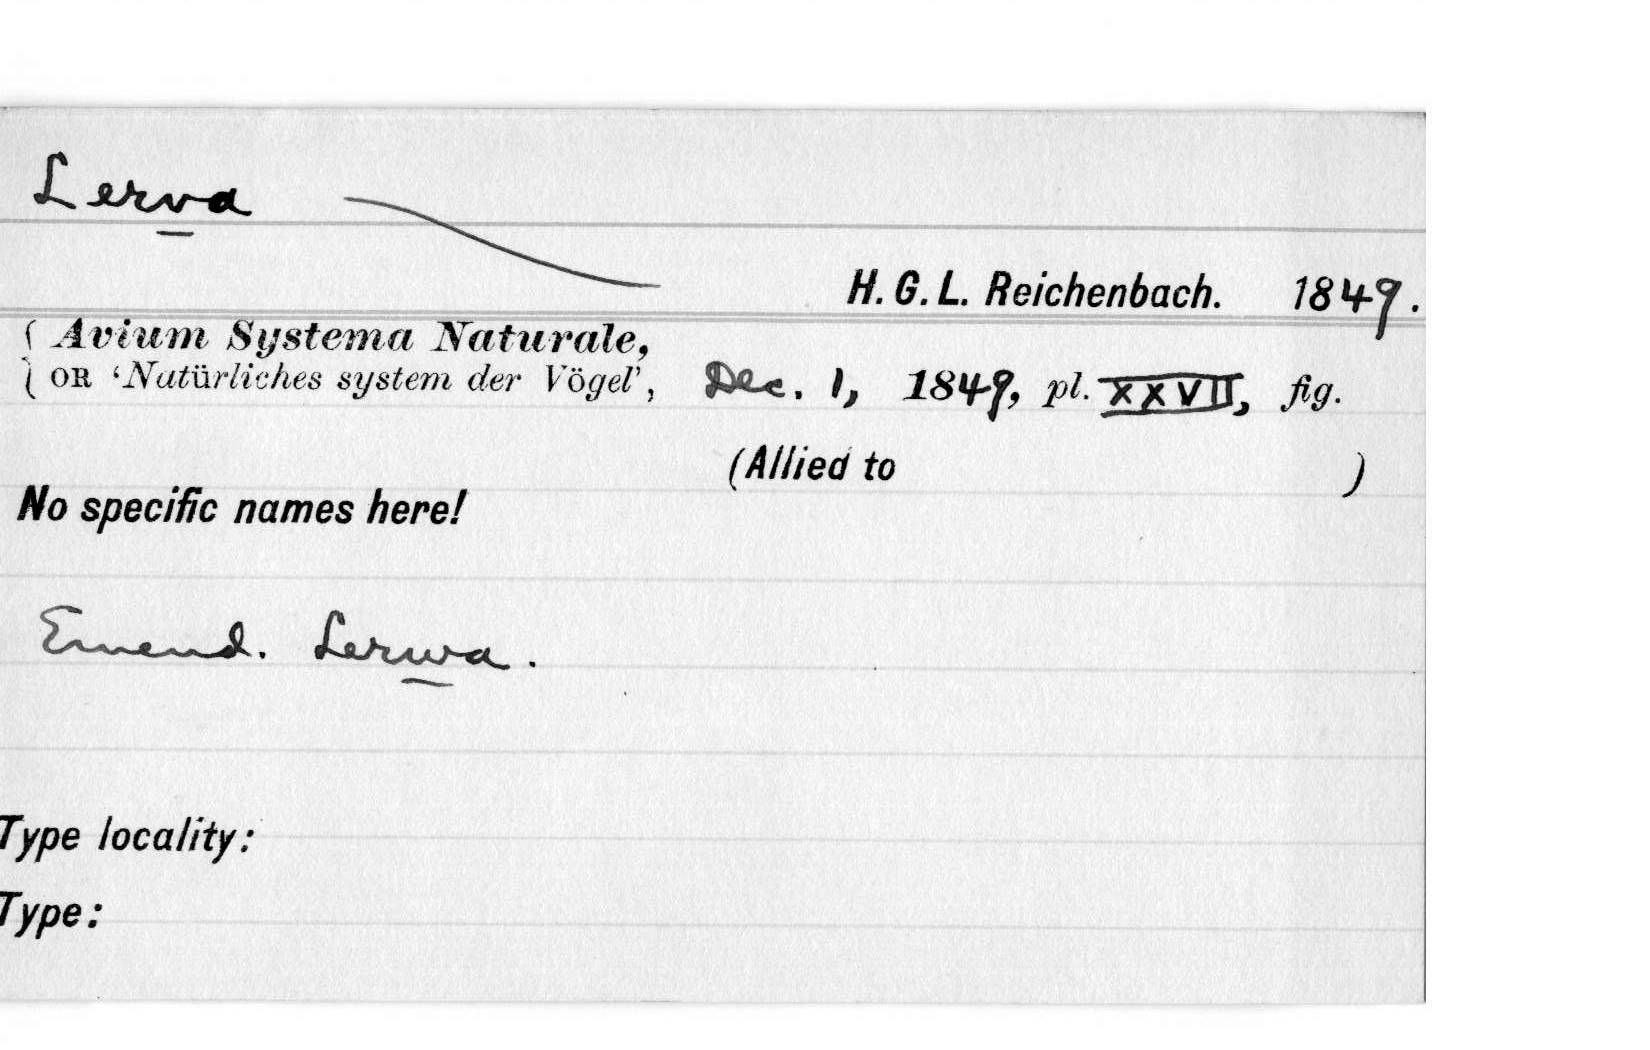 Lerva
H. G. L. Reichenbach. 1849.
{ Avium Systema Naturale,
OR ‘Natürliches system der Vögel’, Dec. 1, 1849, pl. XXVII, fig.
(Allied to )
No specific names here!
Emend. Lerwa.
Type locality:
Type: